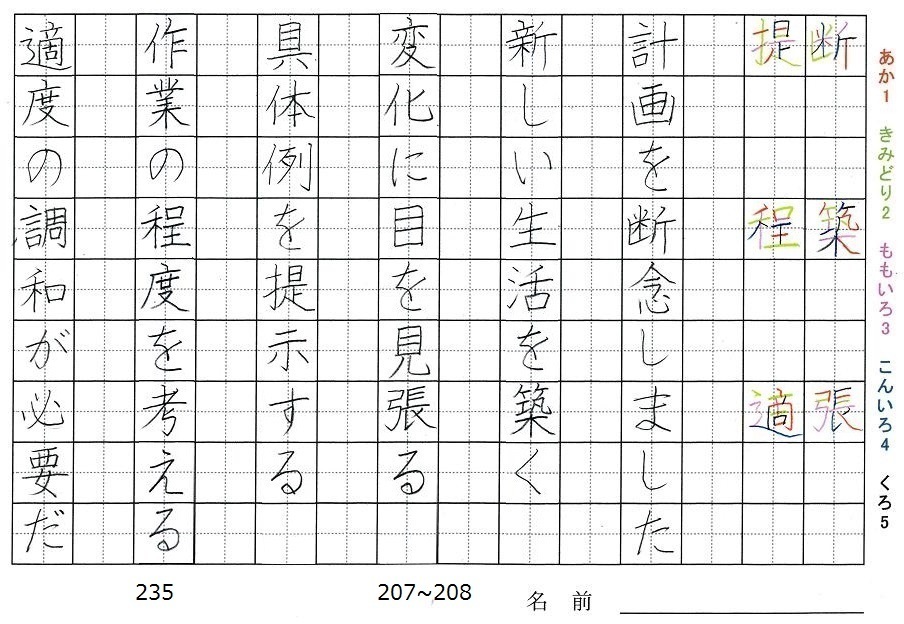 あか1 きみどり2 ももいろ3 こんいろ4 くろ5
断 築 張
提 程 適
計画を断念しました
新しい生活を築く
変化に目を見張る
具体例を提示する
作業の程度を考える
適度の調和が必要だ
235 207~208 名前